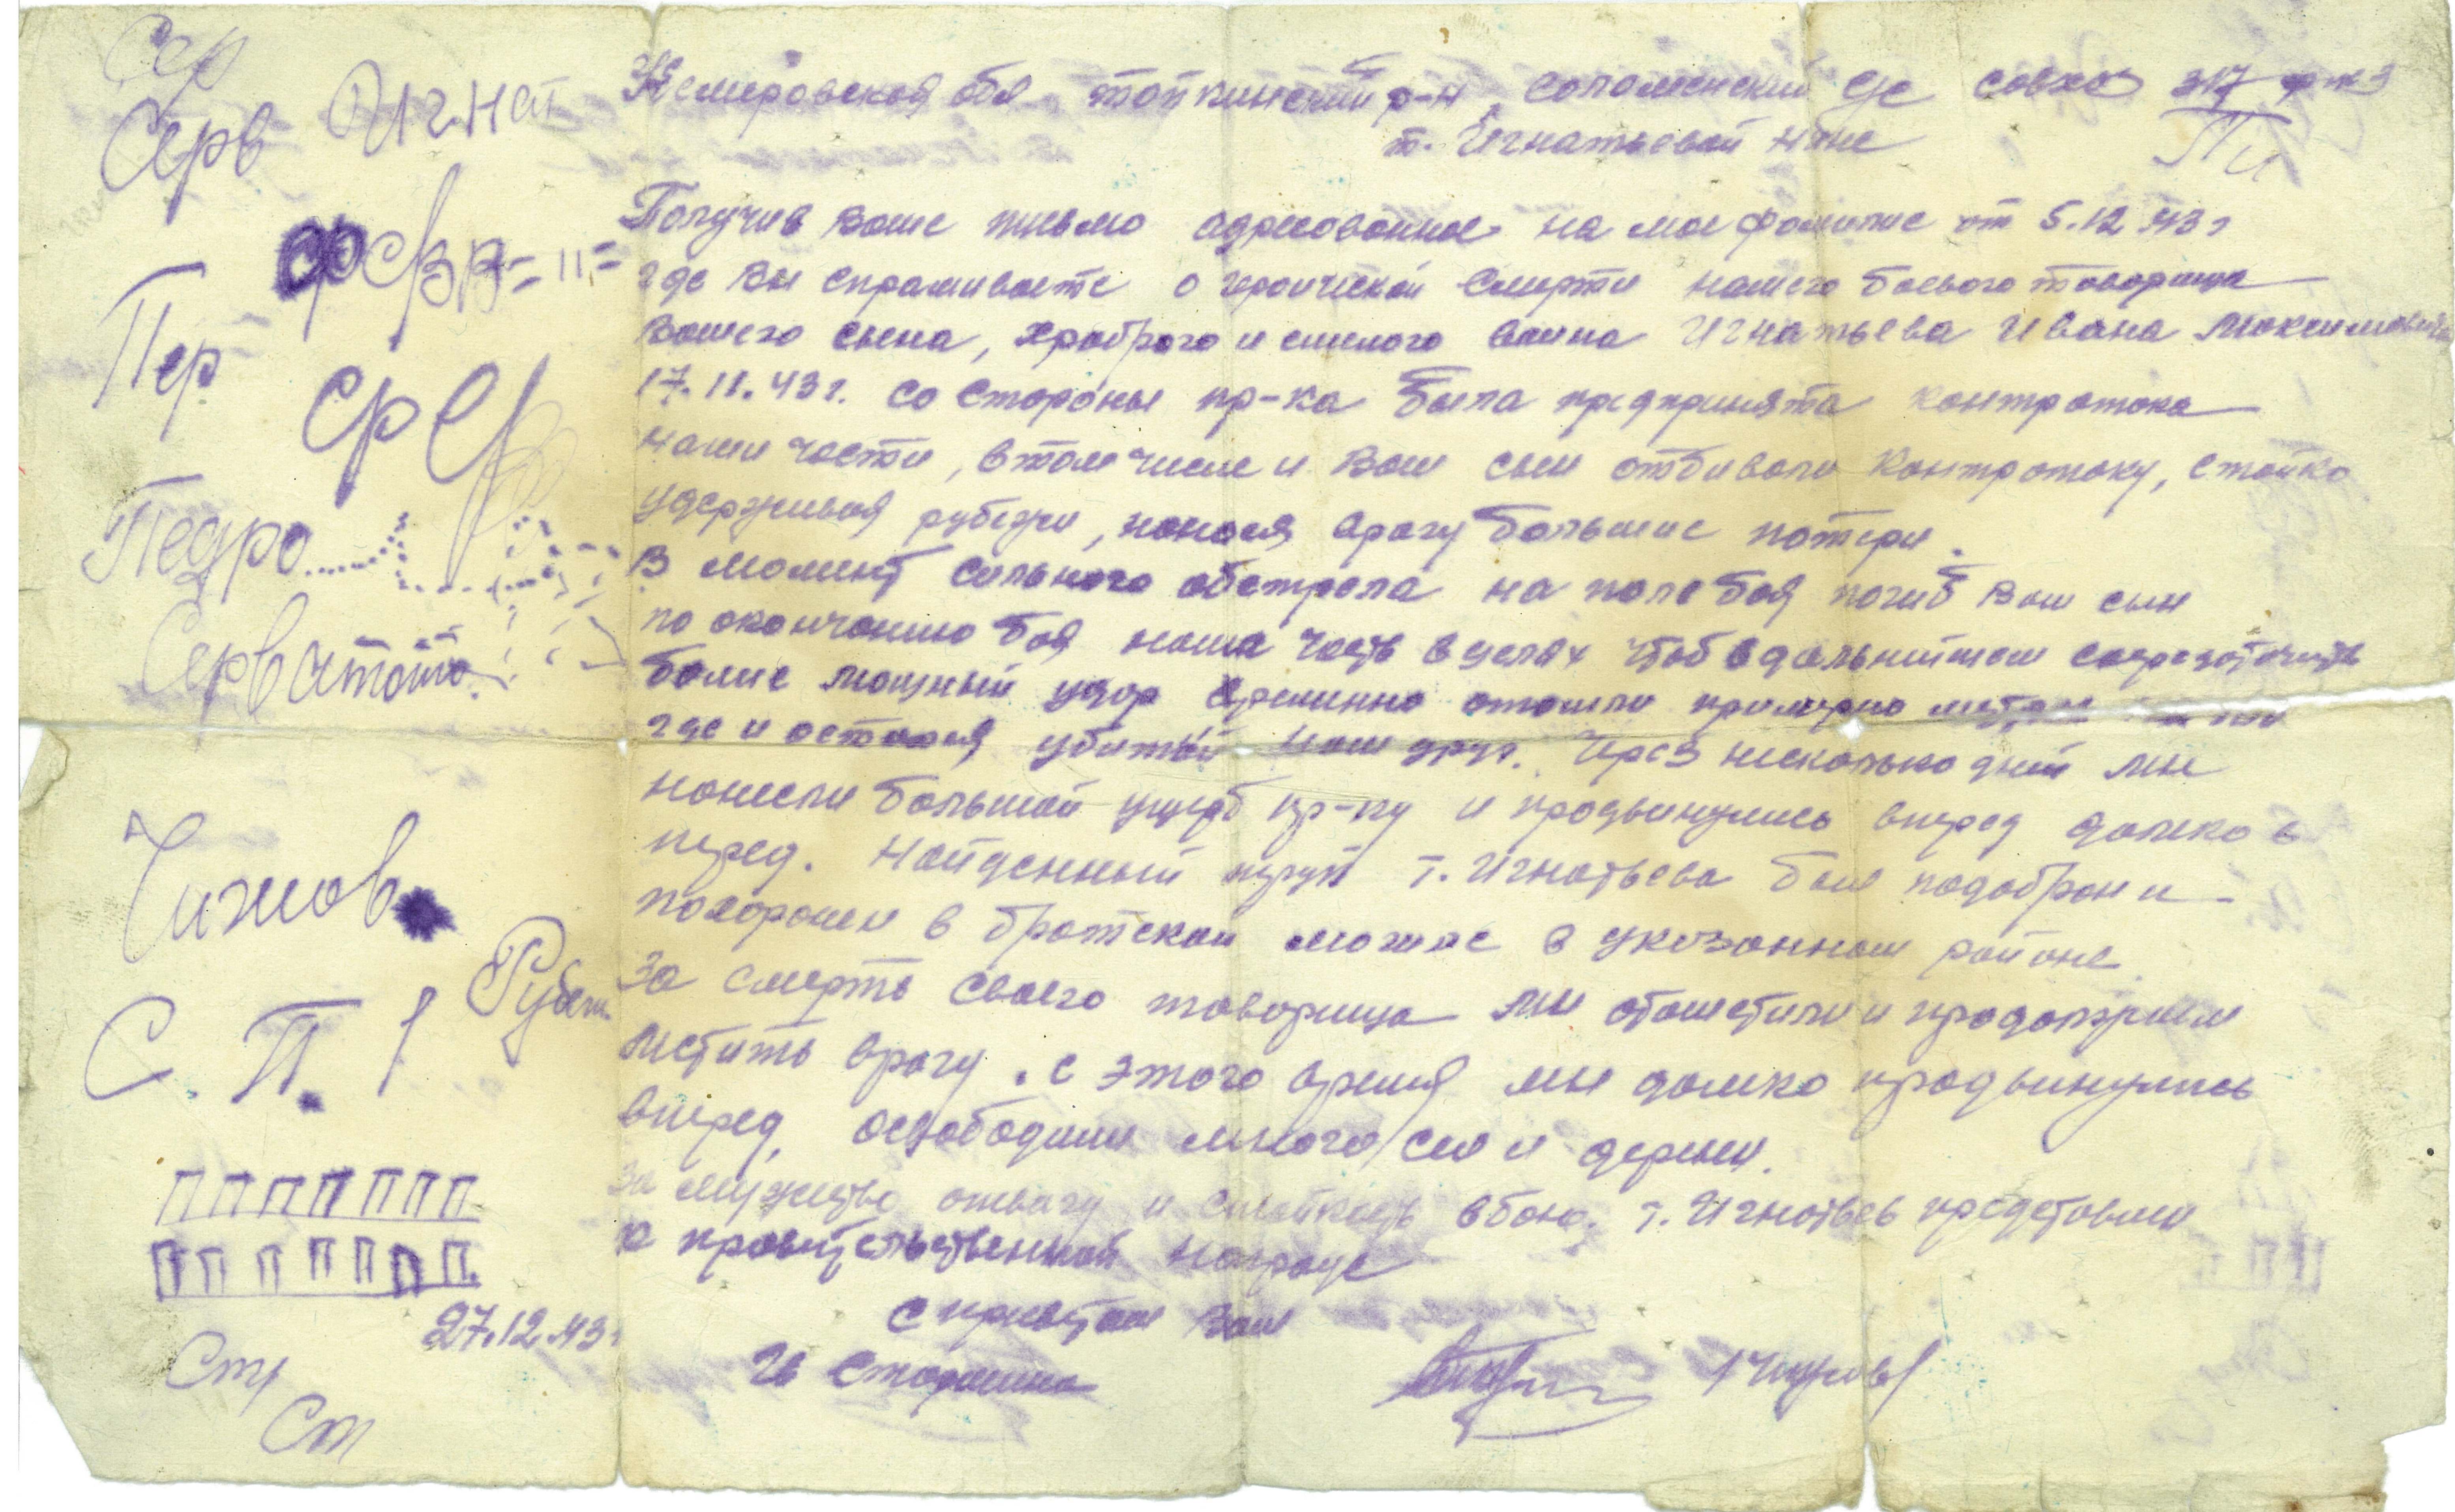 Сер
Серв Игнат
Пер
ср
Педро
Серватого
Чижов
С. П.
П П П П П П П
П П П П П П П
27.12.43г
Ст
Ст
Кемеровская обл Топкинский р-н, Соломенский с/с совхоз 317
т. Игнатьевой Нине
Получив Ваше письмо адресованное на мое фамилие от 5.12.43г
где Вы спрашиваете о героической смерти нашего боевого товарища
Вашего сына, храброго и смелого воина Игнатьева Ивана Максимовича
17.11.43г. со стороны пр-ка была предпринята контратака
наши части, втом числе и Ваш сын отбивали контратаку, стойко
удерживая рубежи, нанося врагу большие потери.
В момент сильного обстрела на поле боя погиб Ваш сын
по окончанию боя наша часть в целях чтоб вдальнейшем сосредоточить
более мощный удар временно отошли примерно метров
где и остался убитый наш друг. Через несколько дней мы
нанесли большой ущерб пр-ку и продвинулись вперед далеко в
перед. Найденный труп т. Игнатьева был подобран и
похоронен в братской могиле в указанном районе.
За смерть своего товарища мы отомстили и продолжаем
мстить врагу. с этого время мы далеко продвинулись
вперед, освободили много сел и деревен.
За мужество отвагу и стойкость вбою. т. Игнатьев представлен
к правительственной награде
с приветом Ваш
Гв Старшина /Чижов/